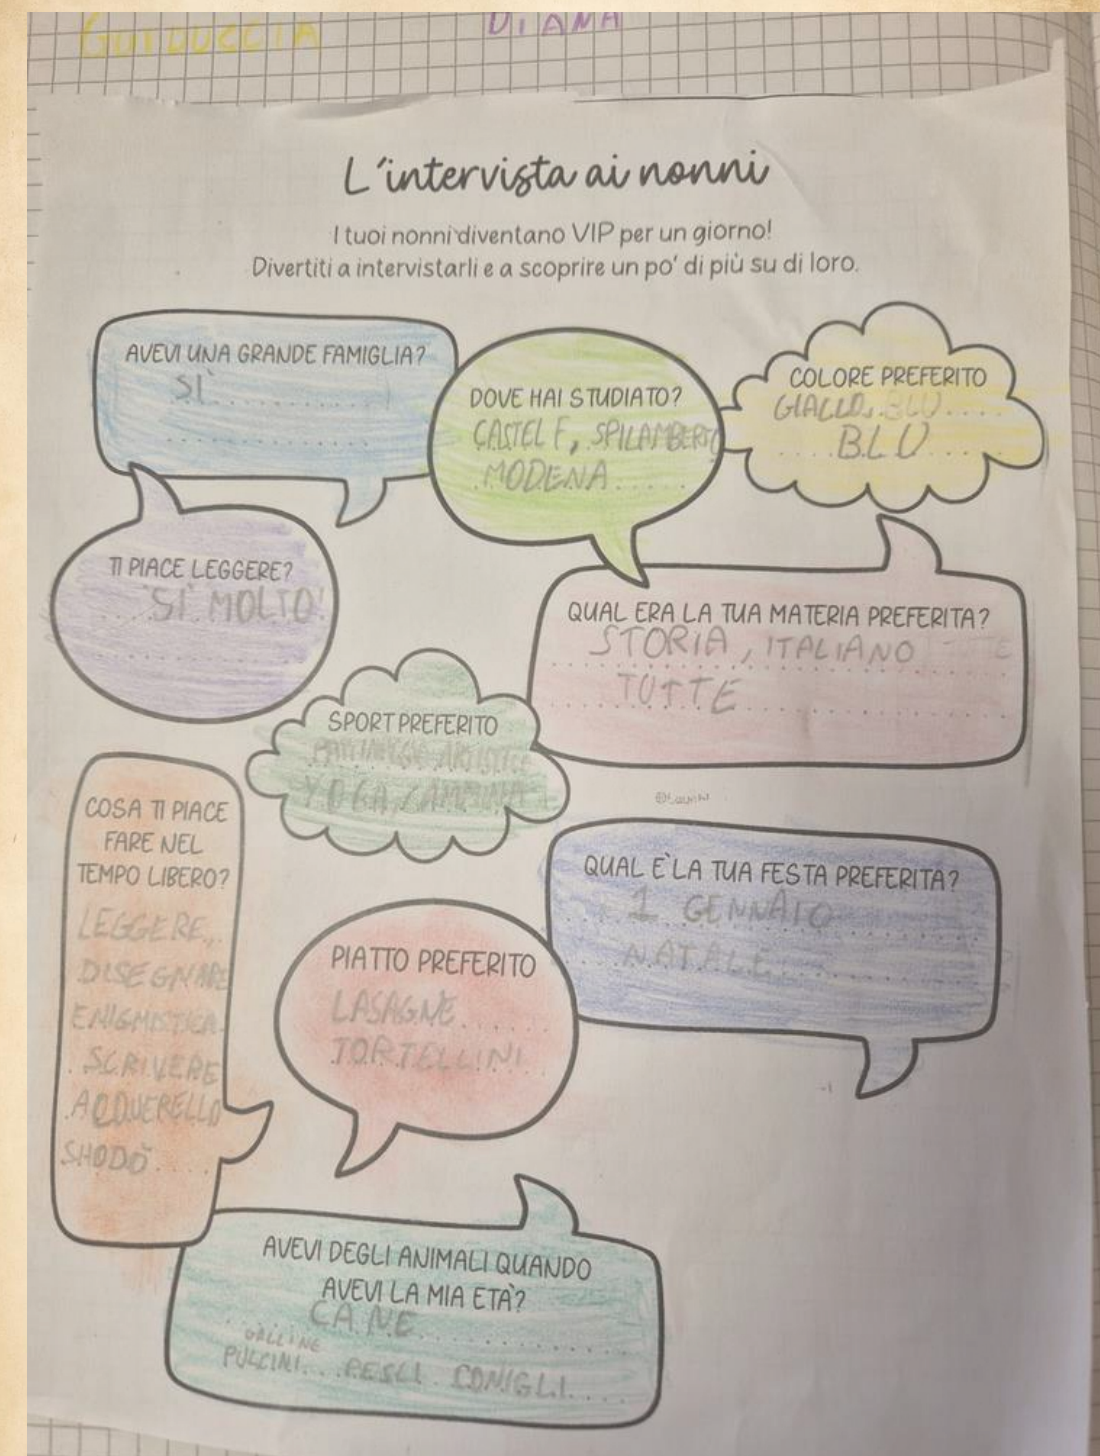 GUIDUCCIA DIANA
L'intervista ai nonni
I tuoi nonni diventano VIP per un giorno!
Divertiti a intervistarli e a scoprire un po' di più su di loro.
AVEVI UNA GRANDE FAMIGLIA?
SI
DOVE HAI STUDIATO?
CASTEL F, SPILAMBERTO
MODENA
COLORE PREFERITO
GIALLO, BLU
BLU
TI PIACE LEGGERE?
SI MOLTO!
QUAL ERA LA TUA MATERIA PREFERITA?
STORIA, ITALIANO
TUTTE
SPORT PREFERITO
YOGA,
COSA TI PIACE
FARE NEL
TEMPO LIBERO?
LEGGERE,
DISEGNARE
ENIGMISTICA
SCRIVERE
ACQUERELLO
SHODŌ
QUAL È LA TUA FESTA PREFERITA?
1 GENNAIO
NATALE
PIATTO PREFERITO
LASAGNE
TORTELLINI
AVEVI DEGLI ANIMALI QUANDO
AVEVI LA MIA ETÀ?
CANE
GALLINE
PULCINI PESCI CONIGLI